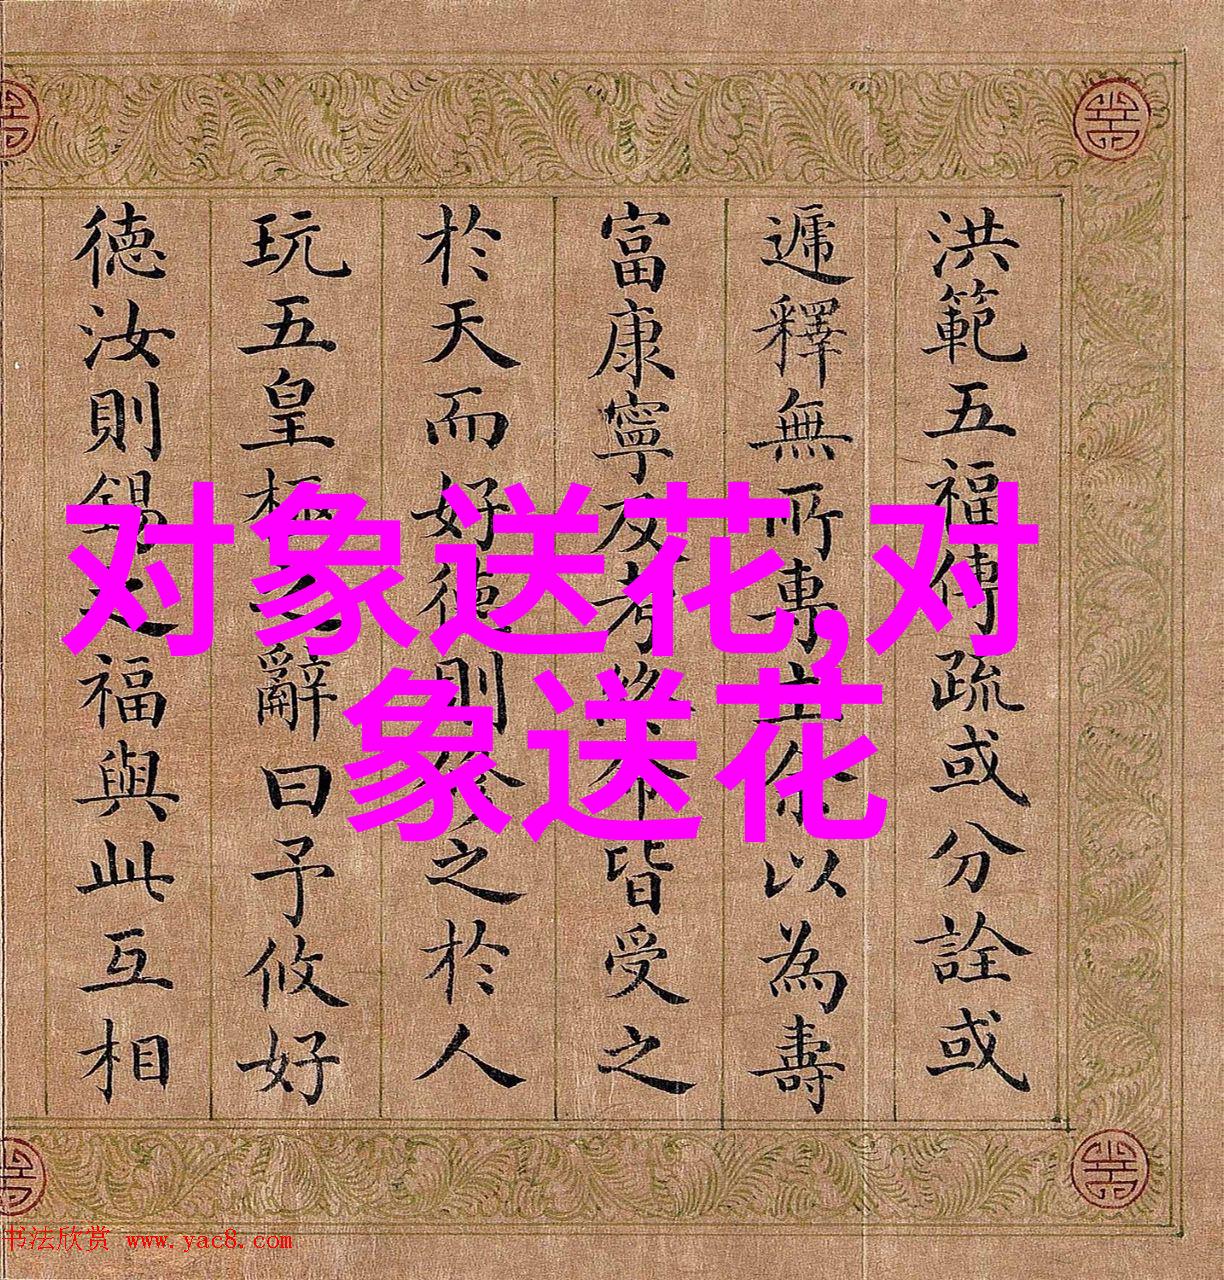 对象送花,对
象送花
洪範五福傳疏或分詮或
遞釋無所專主以為壽
富康寧及考終命皆受之
於天而好德則之於人
玩五皇極之辭曰予攸好
德汝則錫之福與此互相
书法欣赏 www.yac8.com